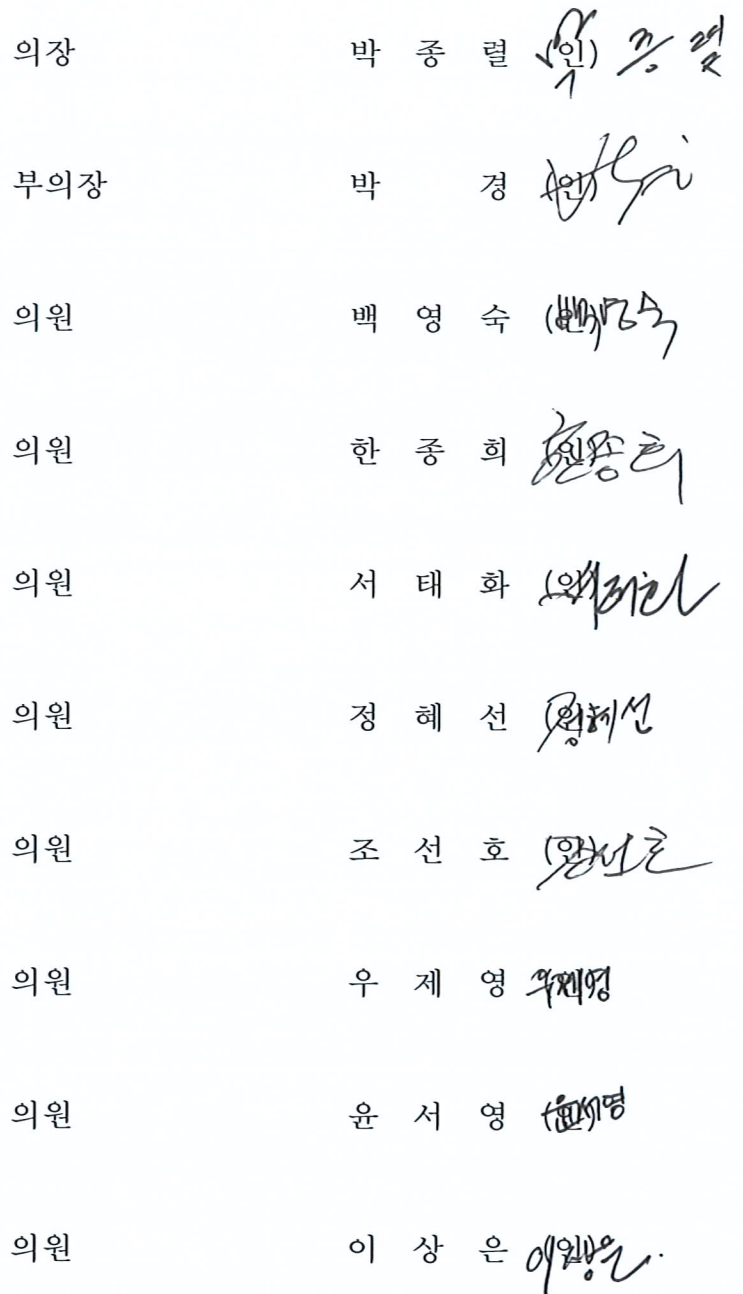 의장 박 종 렬 (인) 종렬
부의장 박 경 (인)
의원 백 영 숙 (인) 백영숙
의원 한 종 희 (인) 한종희
의원 서 태 화 (인) 서태화
의원 정 혜 선 (인) 정혜선
의원 조 선 호 (인) 조선호
의원 우 제 영 (인) 우제영
의원 윤 서 영 (인) 윤서영
의원 이 상 은 (인) 이상은